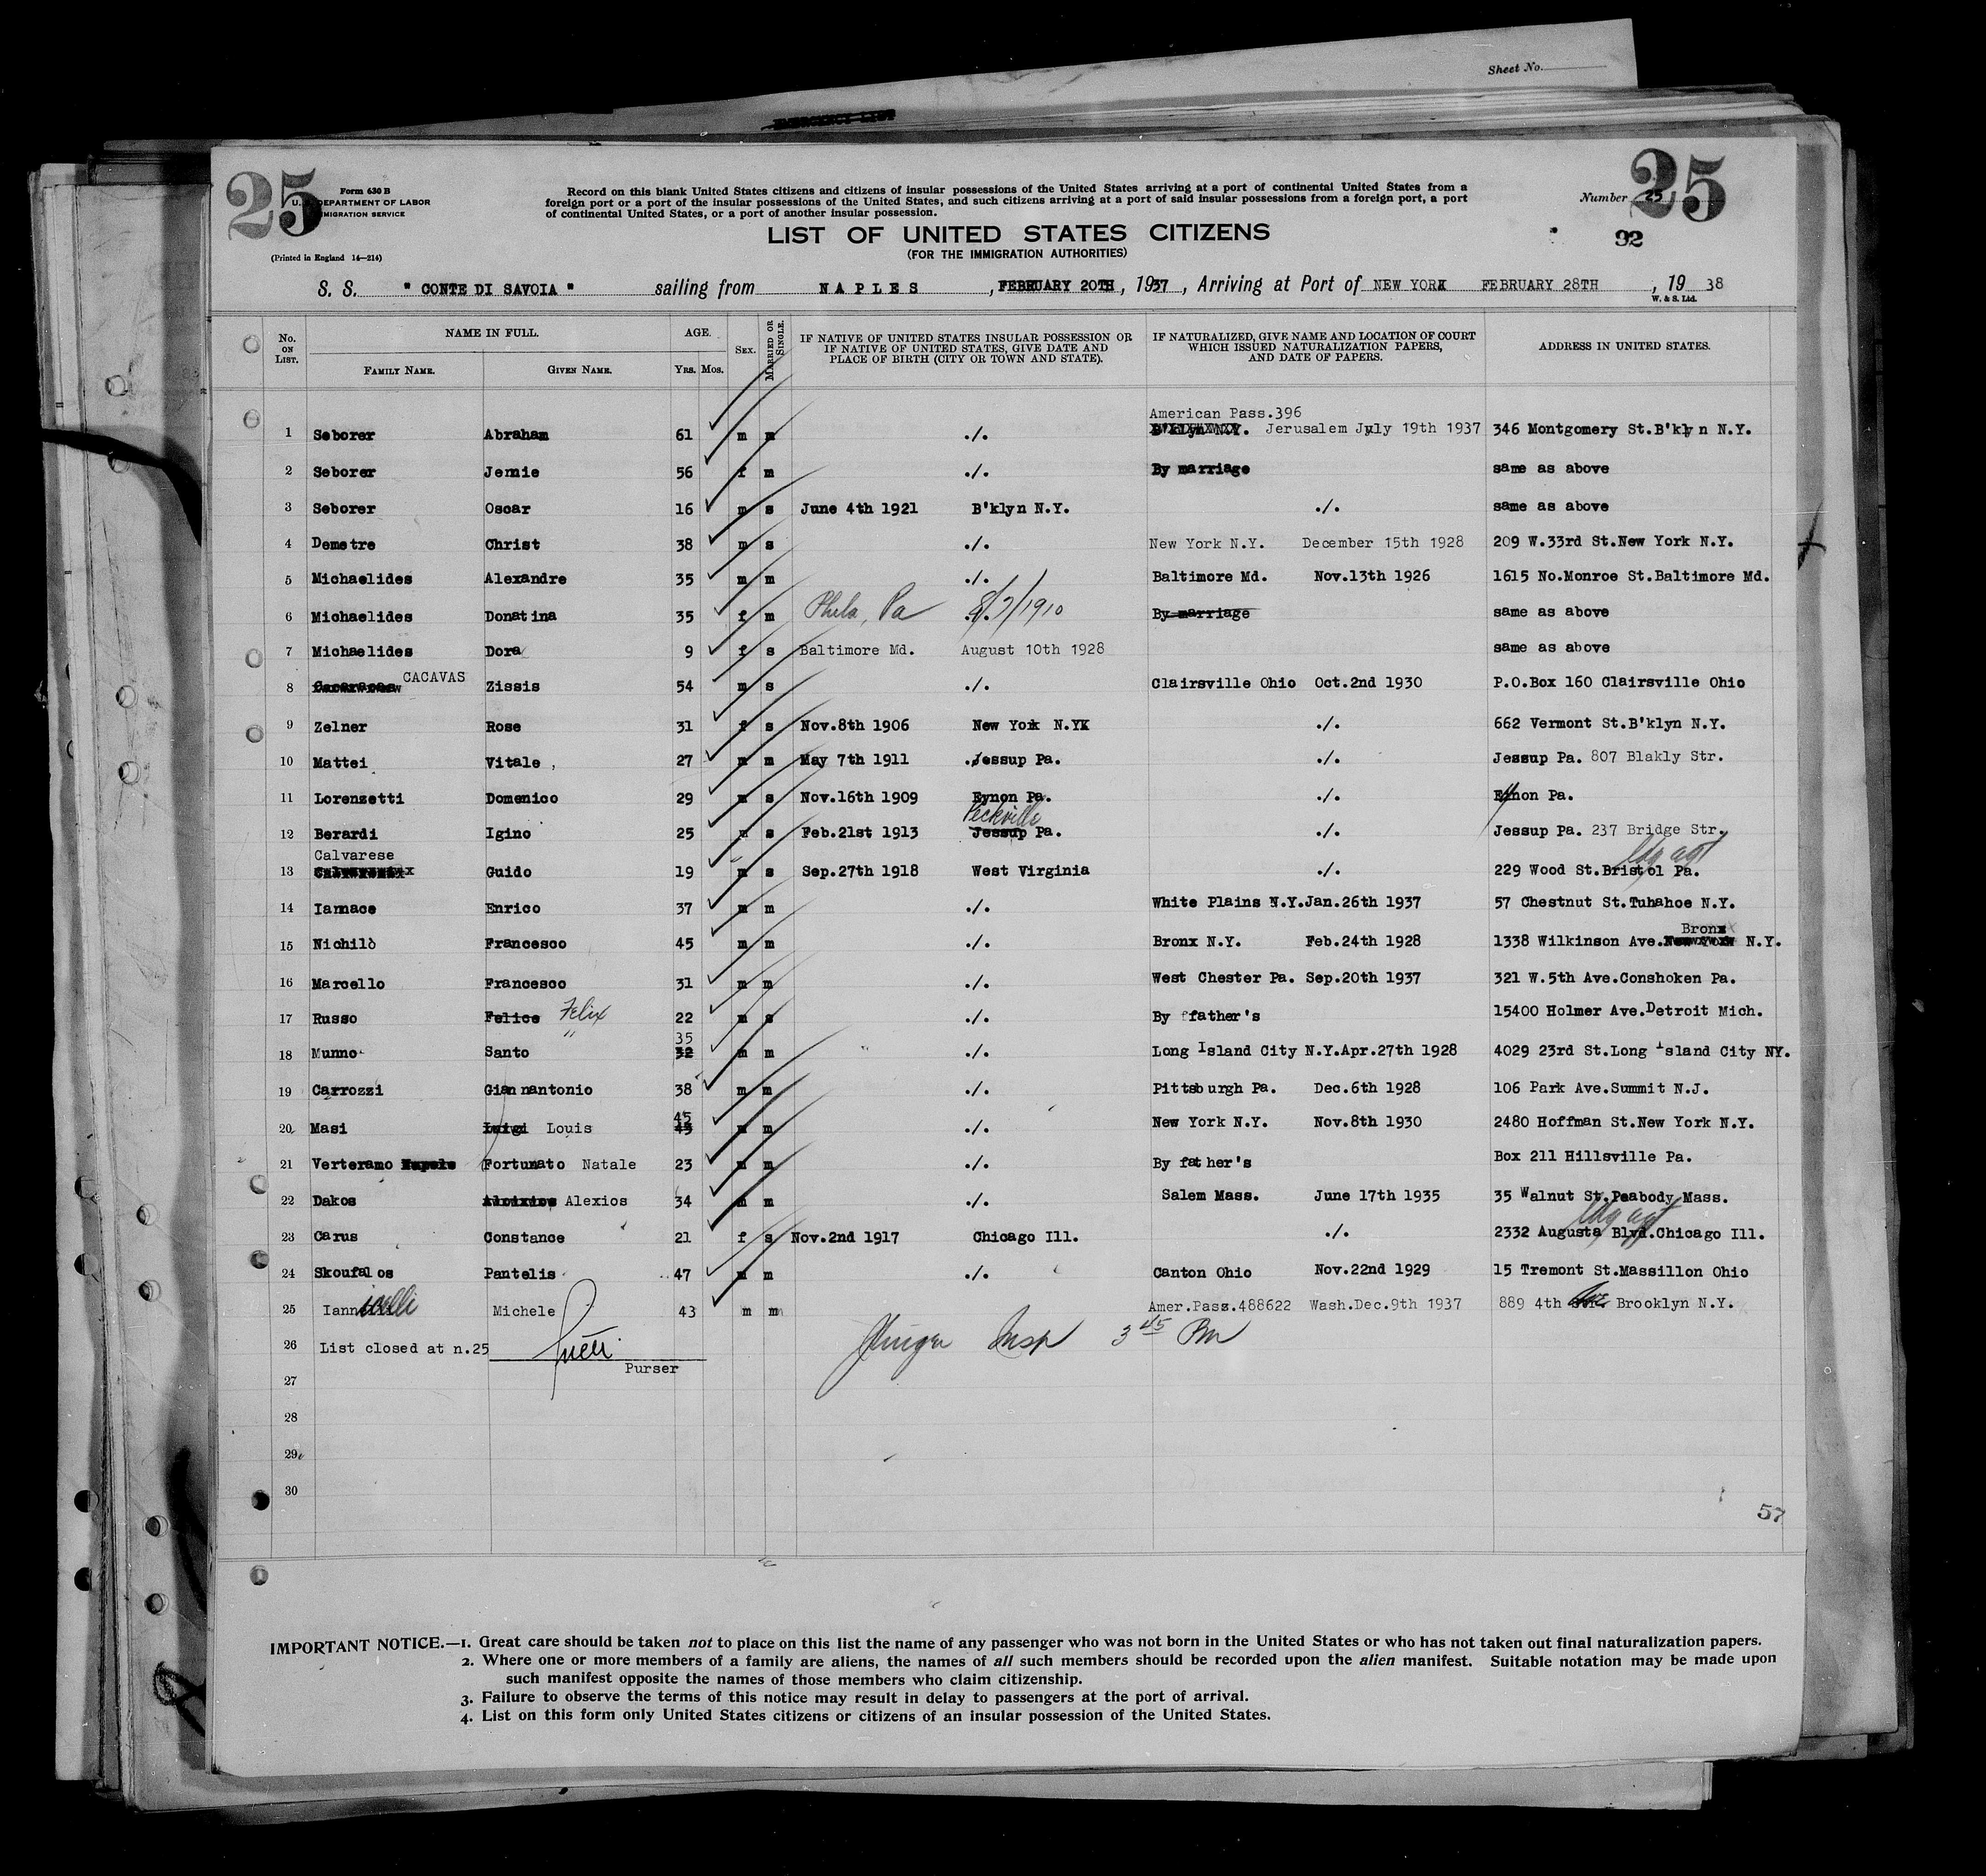 Sheet No.
EMERGENCY LIST
25
Form 630 B
U. S. DEPARTMENT OF LABOR
IMMIGRATION SERVICE
(Printed in England 14—214)
Record on this blank United States citizens and citizens of insular possessions of the United States arriving at a port of continental United States from a
foreign port or a port of the insular possessions of the United States, and such citizens arriving at a port of said insular possessions from a foreign port, a port
of continental United States, or a port of another insular possession.
Number 25
25
92
LIST OF UNITED STATES CITIZENS
(FOR THE IMMIGRATION AUTHORITIES)
S. S. " CONTE DI SAVOIA " sailing from NAPLES , FEBRUARY 20TH , 1937 , Arriving at Port of NEW YORK FEBRUARY 28TH , 19 38
W. & S. Ltd.
No. ON LIST. NAME IN FULL. AGE. SEX. MARRIED OR SINGLE. IF NATIVE OF UNITED STATES INSULAR POSSESSION OR IF NATIVE OF UNITED STATES, GIVE DATE AND PLACE OF BIRTH (CITY OR TOWN AND STATE). IF NATURALIZED, GIVE NAME AND LOCATION OF COURT WHICH ISSUED NATURALIZATION PAPERS, AND DATE OF PAPERS. ADDRESS IN UNITED STATES.
FAMILY NAME. GIVEN NAME. YRS. MOS.
American Pass.396
1 Seborer Abraham 61 m m ./. B'klyn N.Y. Jerusalem July 19th 1937 346 Montgomery St.B'klyn N.Y.
2 Seborer Jemie 56 f m ./. By marriage same as above
3 Seborer Oscar 16 m s June 4th 1921 B'klyn N.Y. ./. same as above
4 Demetre Christ 38 m s ./. New York N.Y. December 15th 1928 209 W.33rd St.New York N.Y.
5 Michaelides Alexandre 35 m m ./. Baltimore Md. Nov.13th 1926 1615 No.Monroe St.Baltimore Md.
6 Michaelides Donatina 35 f m Phila, Pa 8/7/1910 By marriage same as above
7 Michaelides Dora 9 f s Baltimore Md. August 10th 1928 same as above
8 CACAVAS Zissis 54 m s ./. Clairsville Ohio Oct.2nd 1930 P.O.Box 160 Clairsville Ohio
9 Zelner Rose 31 f s Nov.8th 1906 New York N.Y. ./. 662 Vermont St.B'klyn N.Y.
10 Mattei Vitale 27 m m May 7th 1911 Jessup Pa. ./. Jessup Pa. 807 Blakly Str.
11 Lorenzetti Domenico 29 m s Nov.16th 1909 Eynon Pa. ./. Eynon Pa.
Peckville
12 Berardi Igino 25 m s Feb.21st 1913 Jessup Pa. ./. Jessup Pa. 237 Bridge Str.
Calvarese
13 Guido 19 m s Sep.27th 1918 West Virginia ./. 229 Wood St.Bristol Pa.
14 Iannace Enrico 37 m m ./. White Plains N.Y.Jan.26th 1937 57 Chestnut St.Tuhahoe N.Y.
Bronx
15 Nichilò Francesco 45 m m ./. Bronx N.Y. Feb.24th 1928 1338 Wilkinson Ave.New York N.Y.
16 Marcello Francesco 31 m m ./. West Chester Pa. Sep.20th 1937 321 W.5th Ave.Conshoken Pa.
17 Russo Felice Felix 22 m s ./. By father's 15400 Holmer Ave.Detroit Mich.
35
18 Munno Santo 32 m m ./. Long Island City N.Y.Apr.27th 1928 4029 23rd St.Long Island City NY.
19 Carrozzi Giannantonio 38 m m ./. Pittsburgh Pa. Dec.6th 1928 106 Park Ave.Summit N.J.
45
20 Masi Luigi Louis 43 m m ./. New York N.Y. Nov.8th 1930 2480 Hoffman St.New York N.Y.
21 Verteramo Fortunato Natale 23 m m ./. By father's Box 211 Hillsville Pa.
22 Dakos Alexios 34 m m ./. Salem Mass. June 17th 1935 35 Walnut St.Peabody Mass.
23 Carus Constance 21 f s Nov.2nd 1917 Chicago Ill. ./. 2332 Augusta Blvd.Chicago Ill.
24 Skoufalos Pantelis 47 m m ./. Canton Ohio Nov.22nd 1929 15 Tremont St.Massillon Ohio
25 Iannicelli Michele 43 m m Amer.Pass.488622 Wash.Dec.9th 1937 889 4th Ave Brooklyn N.Y.
26 List closed at n.25 Insp 3 45 Pm
Purser
27
28
29
30
57
IMPORTANT NOTICE.—1. Great care should be taken not to place on this list the name of any passenger who was not born in the United States or who has not taken out final naturalization papers.
2. Where one or more members of a family are aliens, the names of all such members should be recorded upon the alien manifest. Suitable notation may be made upon
such manifest opposite the names of those members who claim citizenship.
3. Failure to observe the terms of this notice may result in delay to passengers at the port of arrival.
4. List on this form only United States citizens or citizens of an insular possession of the United States.